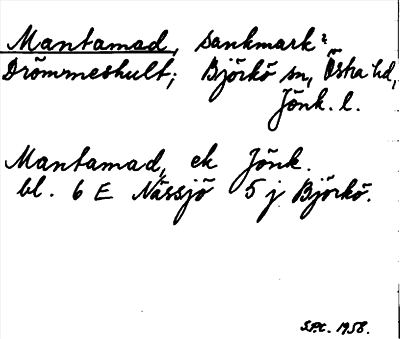 Mantamad, sankmark?
Drömmeshult; Björkö sn, Östra hd,
Jönk. l.
Mantamad, ek Jönk.
bl. 6 E Nässjö 5 j Björkö.
1958.